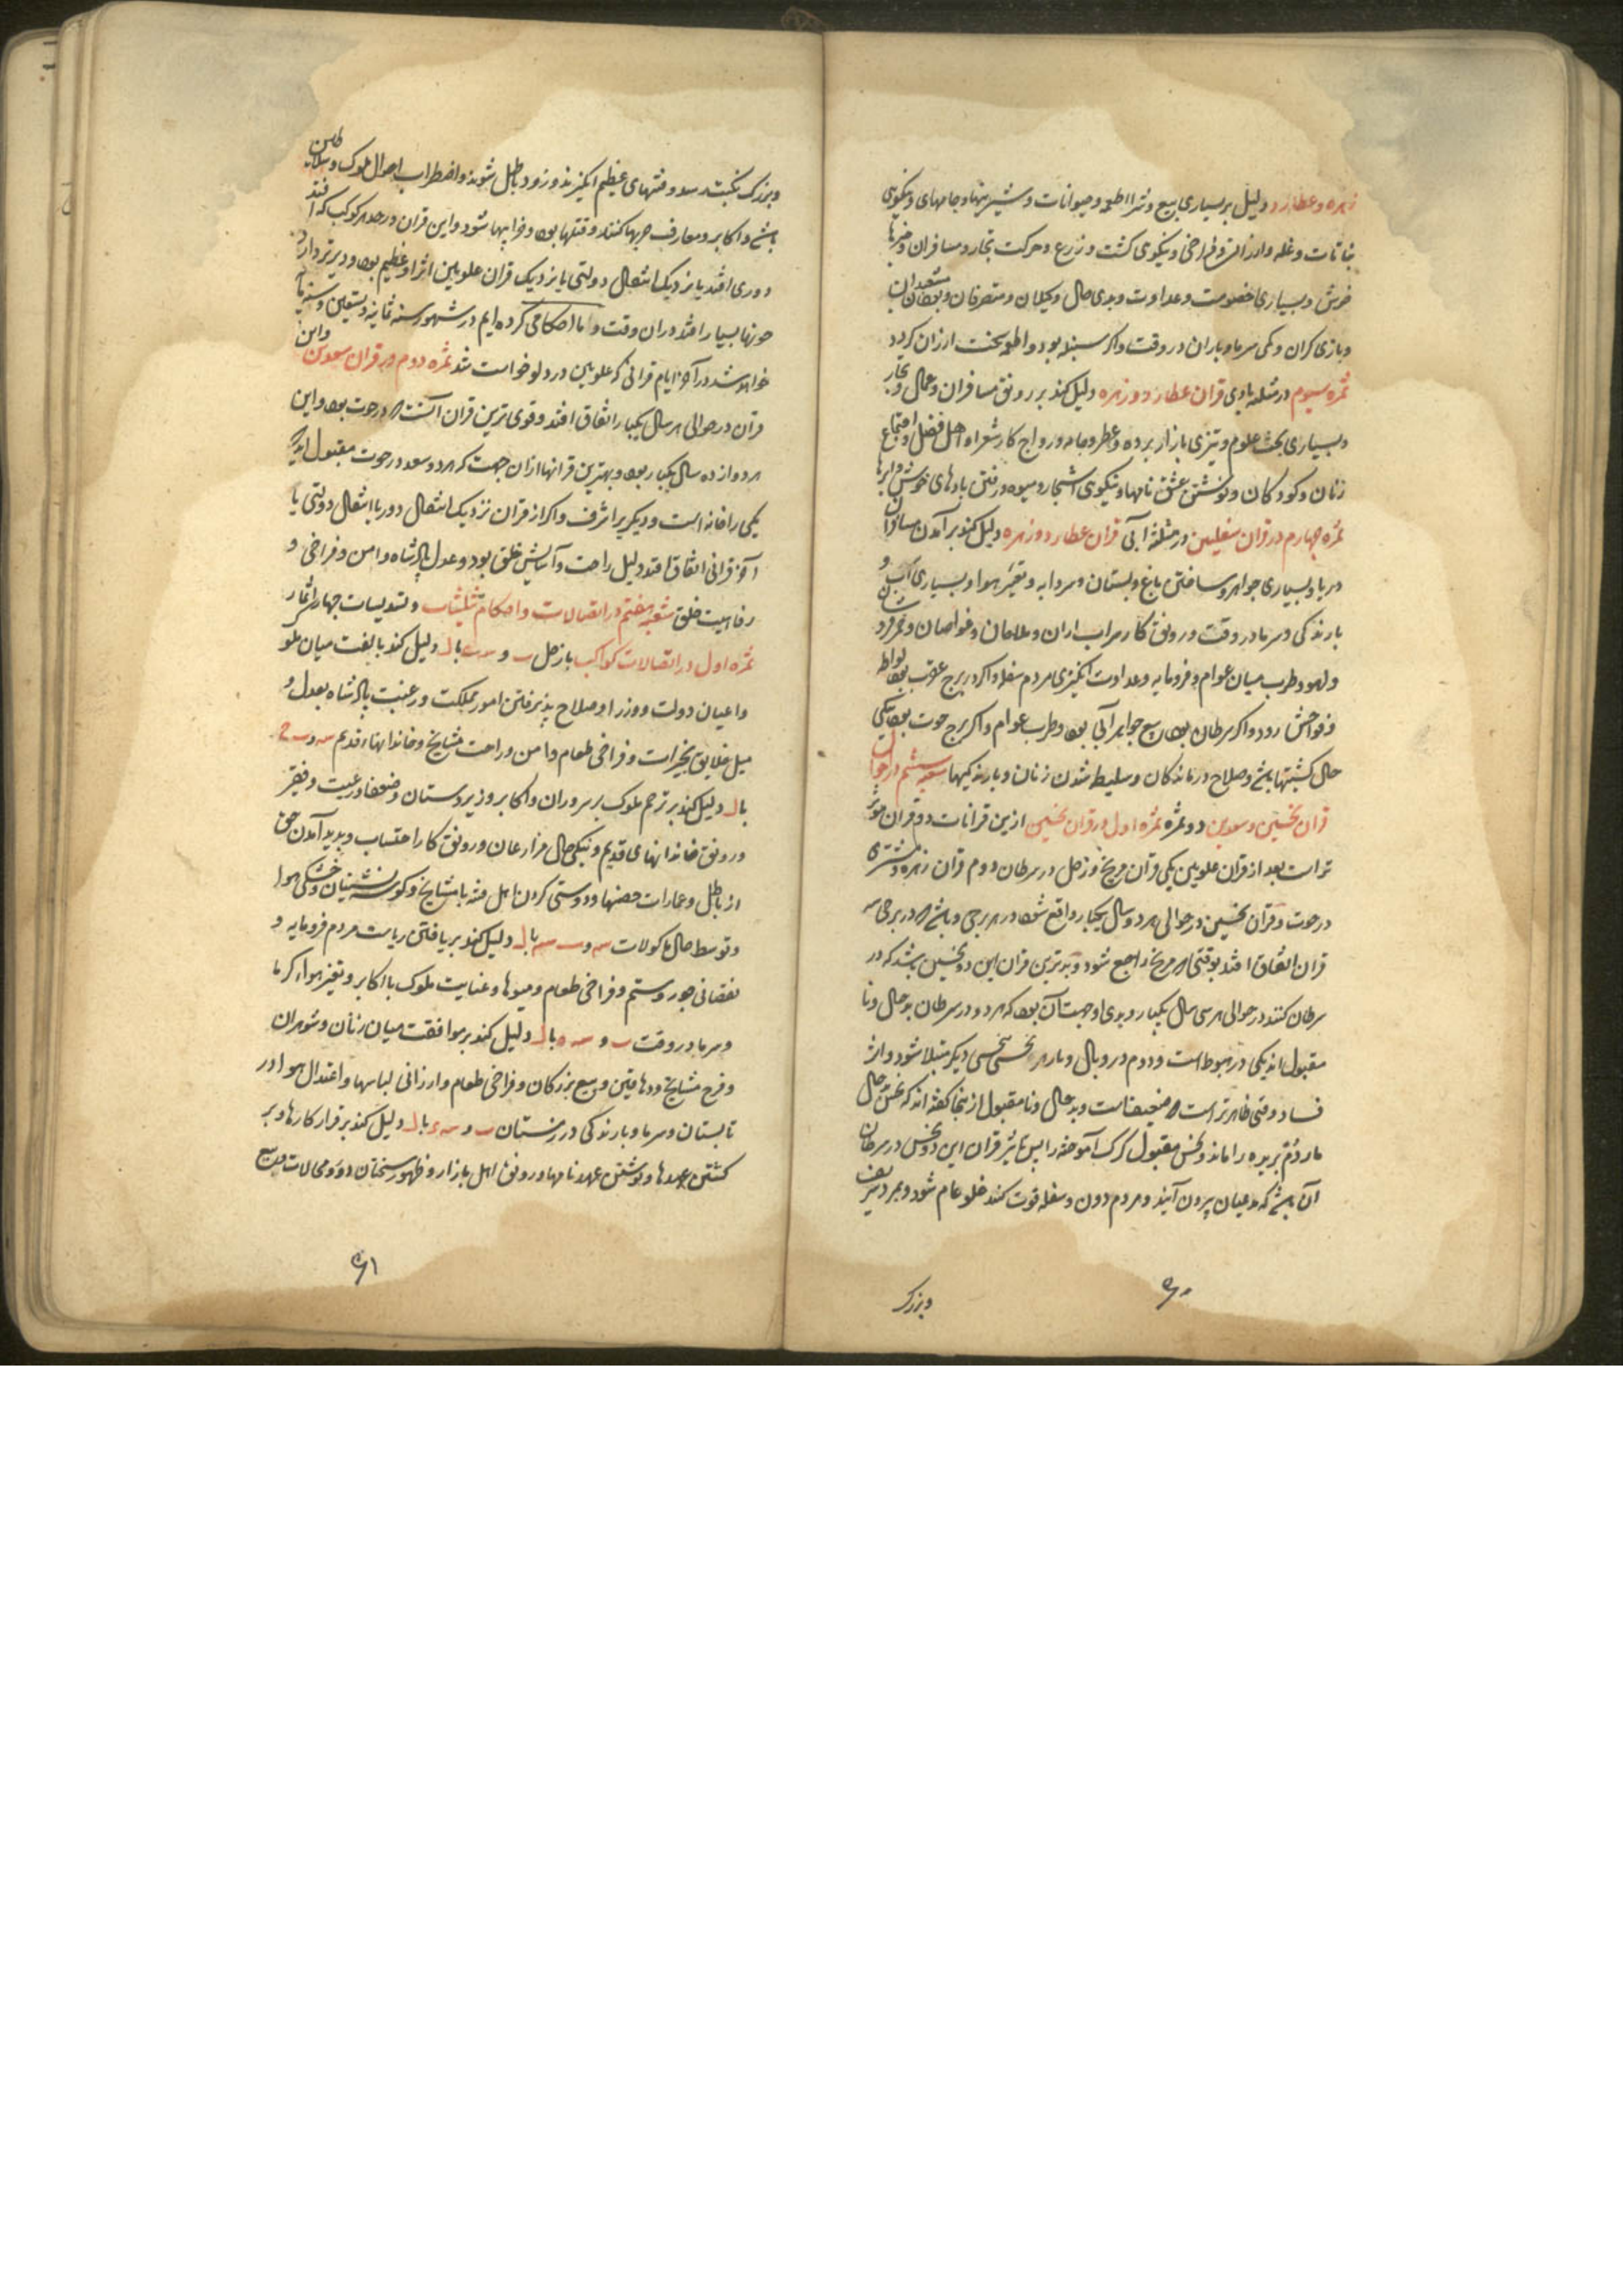 زهره و عطارد دلیل بر بسیاری بیع و شرا اطعمه و حیوانات و شیرینیها و جامهای و نیکویی
نباتات و غله و ارزانی و فراخی و نیکوی کشت و زرع و حرکت تجار و مسافران و خبرها
خوش و بسیاری خصومت و عداوت و بدی حال وکیلان و متصرفان و
و بازی کران و کمی سرما و باران در وقت و اکر سنبله بود و اطعمه سخت ارزان کردد
ثمره سیوم در مثلثه بادی قران عطارد و زهره دلیل کند بر رونق مسافران و عمال و تجار
و بسیاری بحث علوم و تیزی بازار برده و عطر و جامه و رواج کار شعرا و اهل فضل و اجتماع
زنان و کودکان و نوشتن عشق نامها و نیکوی اشجار و میوه و رفتن بادهای خوش و ابرها
ثمره چهارم در قران سفلیین در مثلثه آبی قران عطارد و زهره دلیل کند بر آمدن مسافران
دریا و بسیاری جواهر و ساختن باغ و بستان و سردابه و تغیر هوا و بسیاری آب و
بارندکی و سرما در وقت و رونق کار سراب داران و ملاحان و غواصان و
و لهو و طرب میان عوام و فرومایه و عداوت انکیزی مردم سفله و اکر در برج عقرب بود لواطه
و فواحش رود و اکر سرطان بود بیع جواهر آبی بود و طرب عوام و اکر برج حوت بود نیکی
حال کشتیها باشد و صلاح درماندکان و سلیطه شدن زنان و بارندکیها شعبه ششم در احوال
قران نحسین و سعدین دو ثمره ثمره اول در قران نحسین ازین قرانات دو قران موثر
تر است بعد از قران علویین یکی قران مریخ و زحل در سرطان دوم قران زهره و مشتری
در حوت و قران نحسین در حوالی هر دو سال یکبار واقع شود در هر برجی و باشد که در برجی سه
قران اتفاق افتد بوقتی که مریخ راجع شود و بدترین قران این دو نحسین باشد که در
سرطان کنند در حوالی هر سی سال یکبار و بدی او جهت آن بود که هر دو در سرطان بدحال و نا
مقبول اند یکی در هبوط است و دوم در وبال و ماده هر نحسی بنحسی دیکر مبتلا شود و اثر
فساد وقتی ظاهرتر است که ضعیف است و بدحال و نامقبول ازینجا کفته اند که نحس بدحال
مار دُم بریده را ماند و نحس مقبول کرک آموخته را پس تاثیر قران این دو نحس در سرطان
آن باشد که مدعیان بیرون آیند و مردم دون و سفله قوت کنند غلو عام شود و بمردم شریف
وبزرک
۶۰
و بزرک نکبت رسد و فتنهای عظیم انکیزند و زود باطل شوند و اضطراب احوال ملوک و سلاطین
باشد و اکابر و معارف حربها کنند و قتلها بود و خرابیها شود و این قران در حد هر کوکب که افتد
دوری افتد یا نزدیک انتقال دولتی یا نزدیک قران علویین اثر او عظیم بود و دیرتر دارد
خونها بسیار افتد در ان وقت و اما احکامی کرده ایم در شهور سنه ثمانیه و تسعین و ستمایه
خواهد شد در آخر ایام قرانی که علویین در دلو خواست شد ثمره دوم در قران سعدین و این
قران در حوالی هر سال یکبار اتفاق افتد و قوی ترین قران آنست که در حوت بود و این
هر دوازده سال یکبار بود و بهترین قرانها ازان جهت که هر دو سعد در حوت مقبول اند
یکی را خانه است و دیکری را شرف و اکر از قران نزدیک انتقال دور یا انتقال دولتی یا
آخر قرانی اتفاق افتد دلیل راحت و آسایش خلق بود و عدل پادشاه و امن و فراخی و
رفاهیت خلق شعبه هفتم در اتصالات و احکام تثلیثات و تسدیسات چهار اثمار
ثمره اول در اتصالات کواکب با زحل دلیل کند بالفت میان ملوک
و اعیان دولت و وزرا و صلاح پذیرفتن امور مملکت و رغبت پادشاه بعدل و
میل خلایق بخیرات و فراخی طعام و امن و راحت مشایخ و خاندانهاء قدیم
دلیل کند بر ترحم ملوک بر سروران و اکابر و زیردستان و ضعفا و رعیت و فقیر
و رونق خاندانهای قدیم و نیکی حال مزارعان و رونق کار احتساب و پدید آمدن حق
از باطل و عمارات حصنها و دوستی کردن اهل فتنه با مشایخ و کوشه نشینان و خشکی هوا
و توسط حال ماکولات دلیل کند بر یافتن ریاست مردم فرومایه و
نقصانی جور و ستم و فراخی طعام و میوها و عنایت ملوک با اکابر و تغیر هواء کرما
و سرما در وقت دلیل کند بر موافقت میان زنان و شوهران
و فرح مشایخ و دهاقین و بیع بزرکان و فراخی طعام و ارزانی لباسها و اعتدال هوا در
تابستان و سرما و بارندکی در زمستان دلیل کند بر قرار کارها و بر
کشتن عهدها و نوشتن عهدنامها و رونق اهل بازار و ظهور سخنان
۶۱